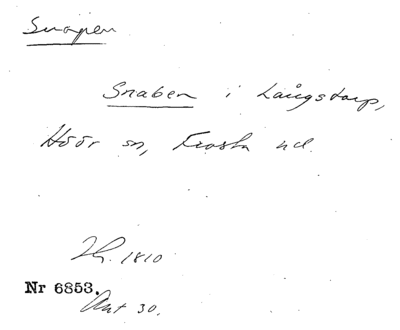 Snapen
Snaben i Långstorp,
Höör sn, Frosta hd.
Lh. 1810
Nr 6853.
Akt 30.